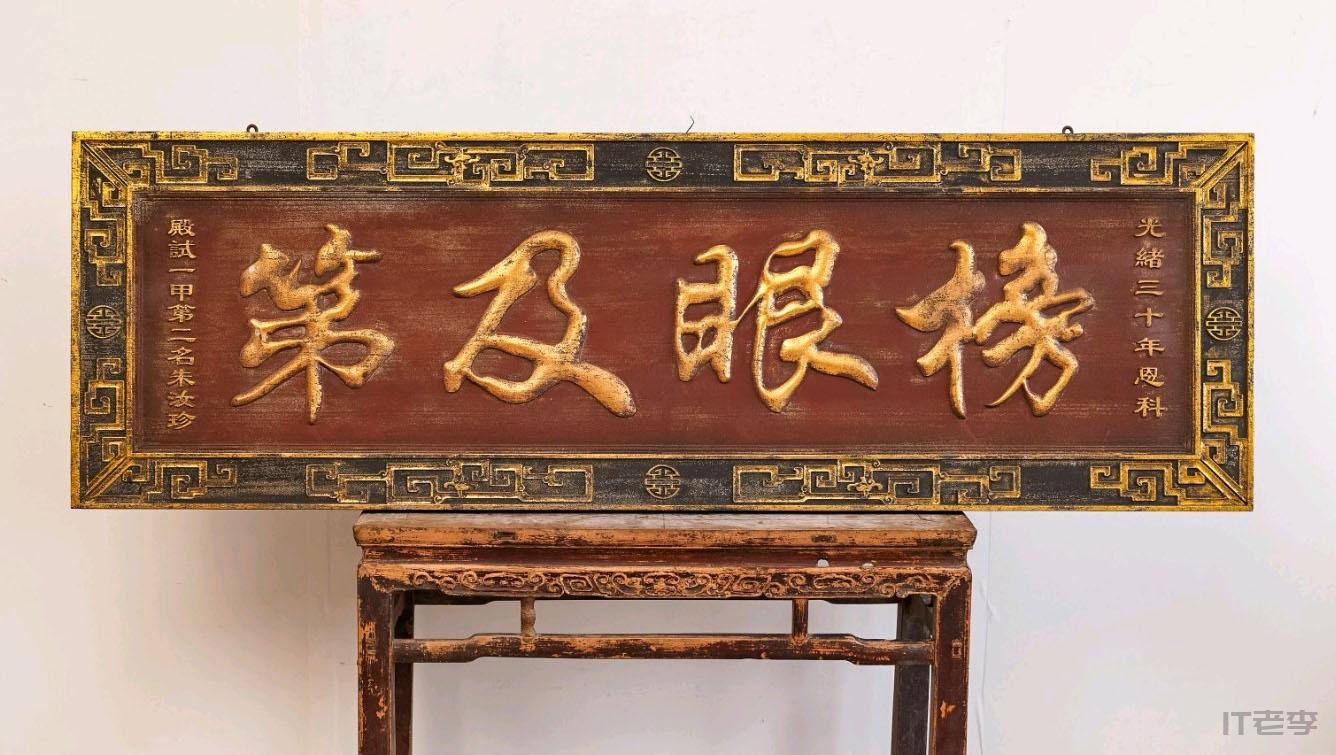 光緒三十年恩科
榜眼及第
殿試一甲第二名朱汝珍
IT老李